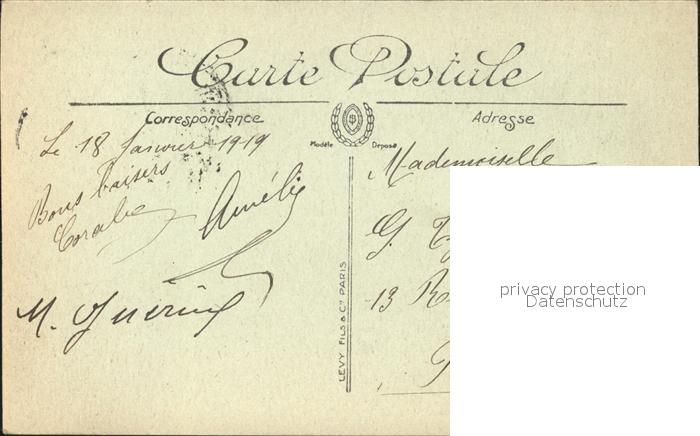 Carte Postale
Correspondance
Adresse
Modèle Déposé
Le 18 Janvier 1919
Bons baisers
Amélie
M. Guérin
LEVY FILS & Cie PARIS
Mademoiselle
G.
13 R
privacy protection
Datenschutz